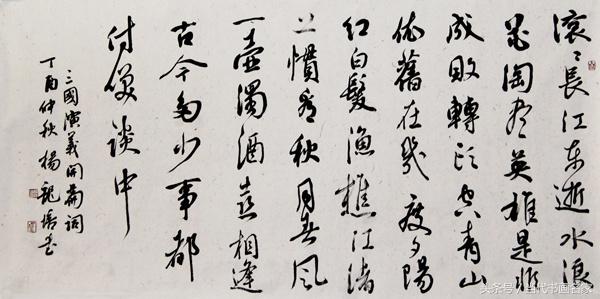 滚々長江东逝水浪
花淘尽英雄是非
成败轉头空青山
依舊在幾度夕陽
红白髮渔樵江渚
上慣看秋月春风
一壶濁酒喜相逢
古今多少事都
付笑談中
三國演義開篇词
丁酉仲秋楊龍
头条号／当代书画名家